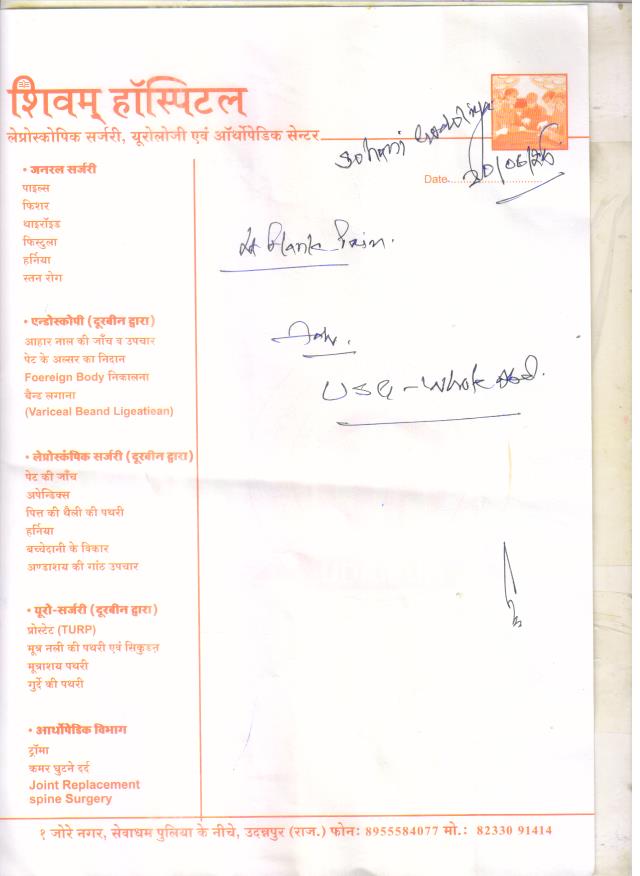 शिवम् हॉस्पिटल
लेप्रोस्कोपिक सर्जरी, यूरोलोजी एवं ऑर्थोपेडिक सेन्टर
Sohani
Date
20/06/26
• जनरल सर्जरी
पाइल्स
फिशर
थाइरॉइड
फिस्टुला
हर्निया
स्तन रोग
Flank Pain.
USG - Whole Abd.
• एन्डोस्कोपी (दूरबीन द्वारा)
आहार नाल की जाँच व उपचार
पेट के अल्सर का निदान
Foereign Body निकालना
बैन्ड लगाना
(Variceal Beand Ligeatiean)
• लेप्रोस्कंपिक सर्जरी (दूरबीन द्वारा)
पेट की जाँच
अपेन्डिक्स
पित्त की थैली की पथरी
हर्निया
बच्चेदानी के विकार
अण्डाशय की गांठ उपचार
• यूरो-सर्जरी (दूरबीन द्वारा)
प्रोस्टेट (TURP)
मूत्र नली की पथरी एवं सिकुडन
मूत्राशय पथरी
गुर्दे की पथरी
• आर्थोपेडिक विभाग
ट्रॉमा
कमर घुटने दर्द
Joint Replacement
spine Surgery
१ जोरे नगर, सेवाधम पुलिया के नीचे, उदन्नपुर (राज.) फोनः 8955584077 मो.: 82330 91414